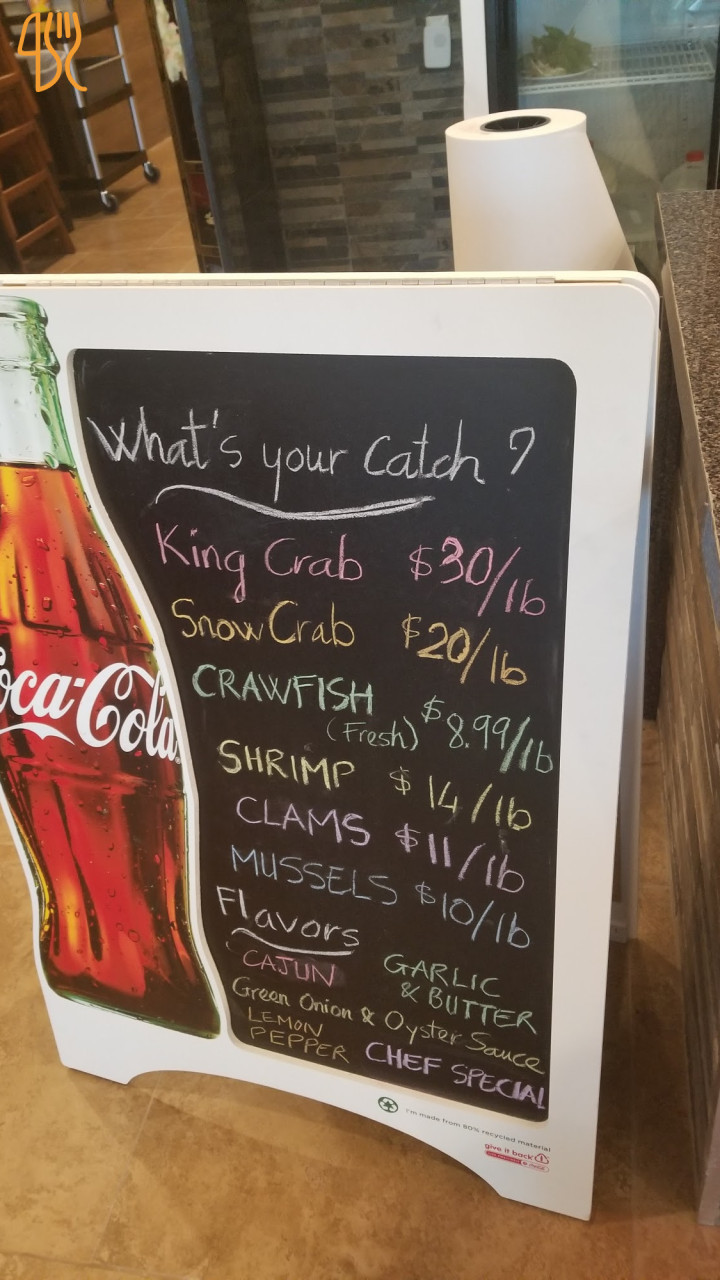 What's your Catch ?
King Crab $30/lb
Snow Crab $20/lb
CRAWFISH $8.99/lb
(Fresh)
SHRIMP $14/lb
CLAMS $11/lb
MUSSELS $10/lb
Flavors
CAJUN
GARLIC
& BUTTER
Green Onion & Oyster Sauce
LEMON
PEPPER
CHEF SPECIAL
Coca-Cola
I'm made from 80% recycled material
give it back